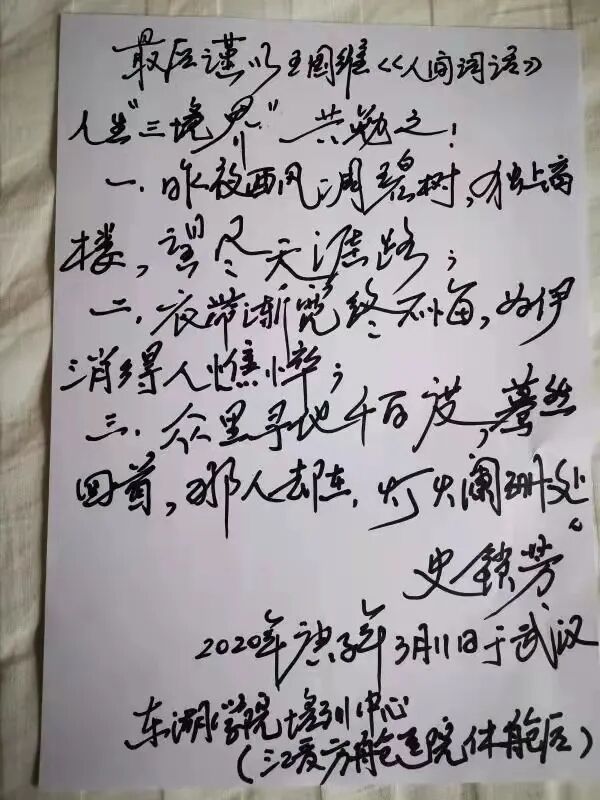 最后谨以王国维《《人间词话》》
人生"三境界"共勉之！
一．昨夜西风凋碧树，独上高
楼，望尽天涯路；
二．衣带渐宽终不悔，为伊
消得人憔悴；
三．众里寻他千百度，蓦然
回首，那人却在，灯火阑珊处。
史锁芳
2020年庚子年3月11日于武汉
东湖学院培训中心
（江夏方舱医院休舱后）